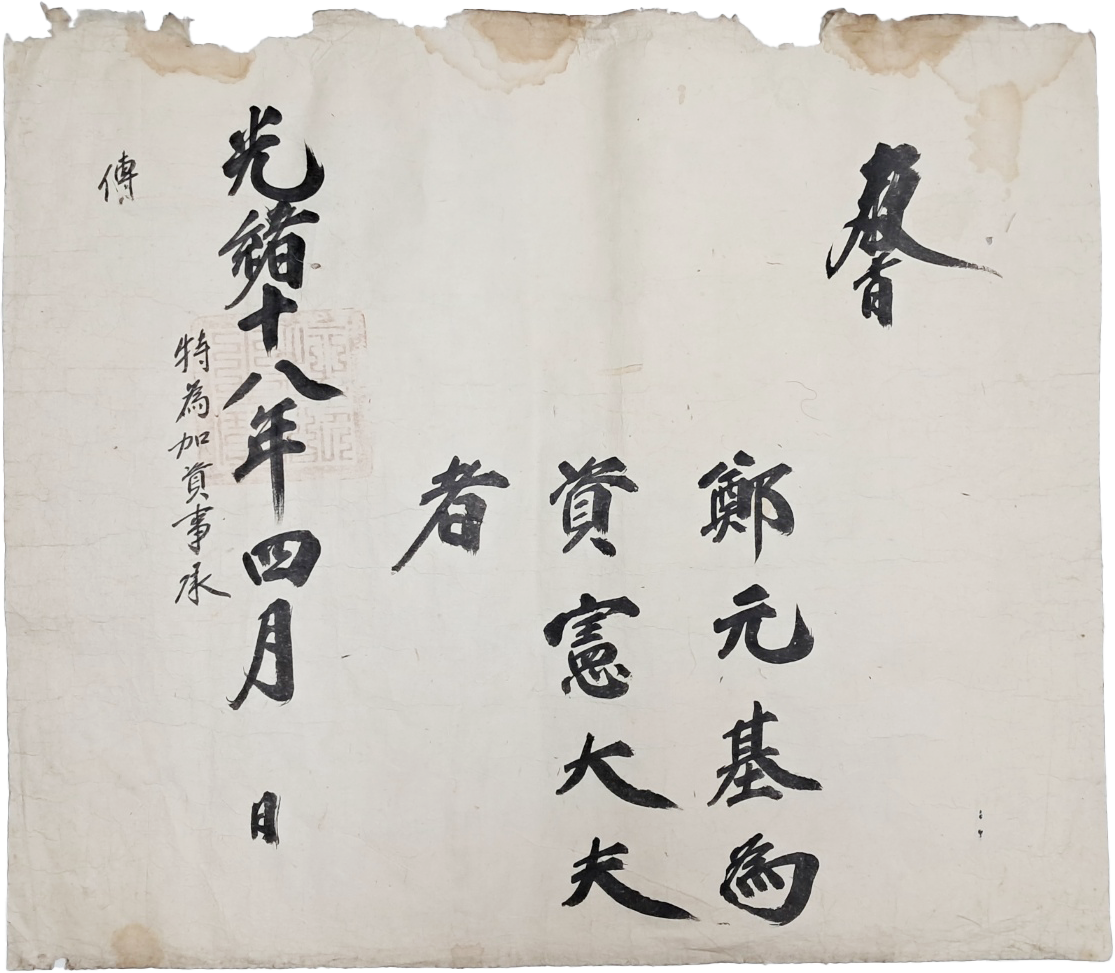 敎旨
鄭元基為
資憲大夫
者
光緖十八年四月 日
特為加資事承
傳